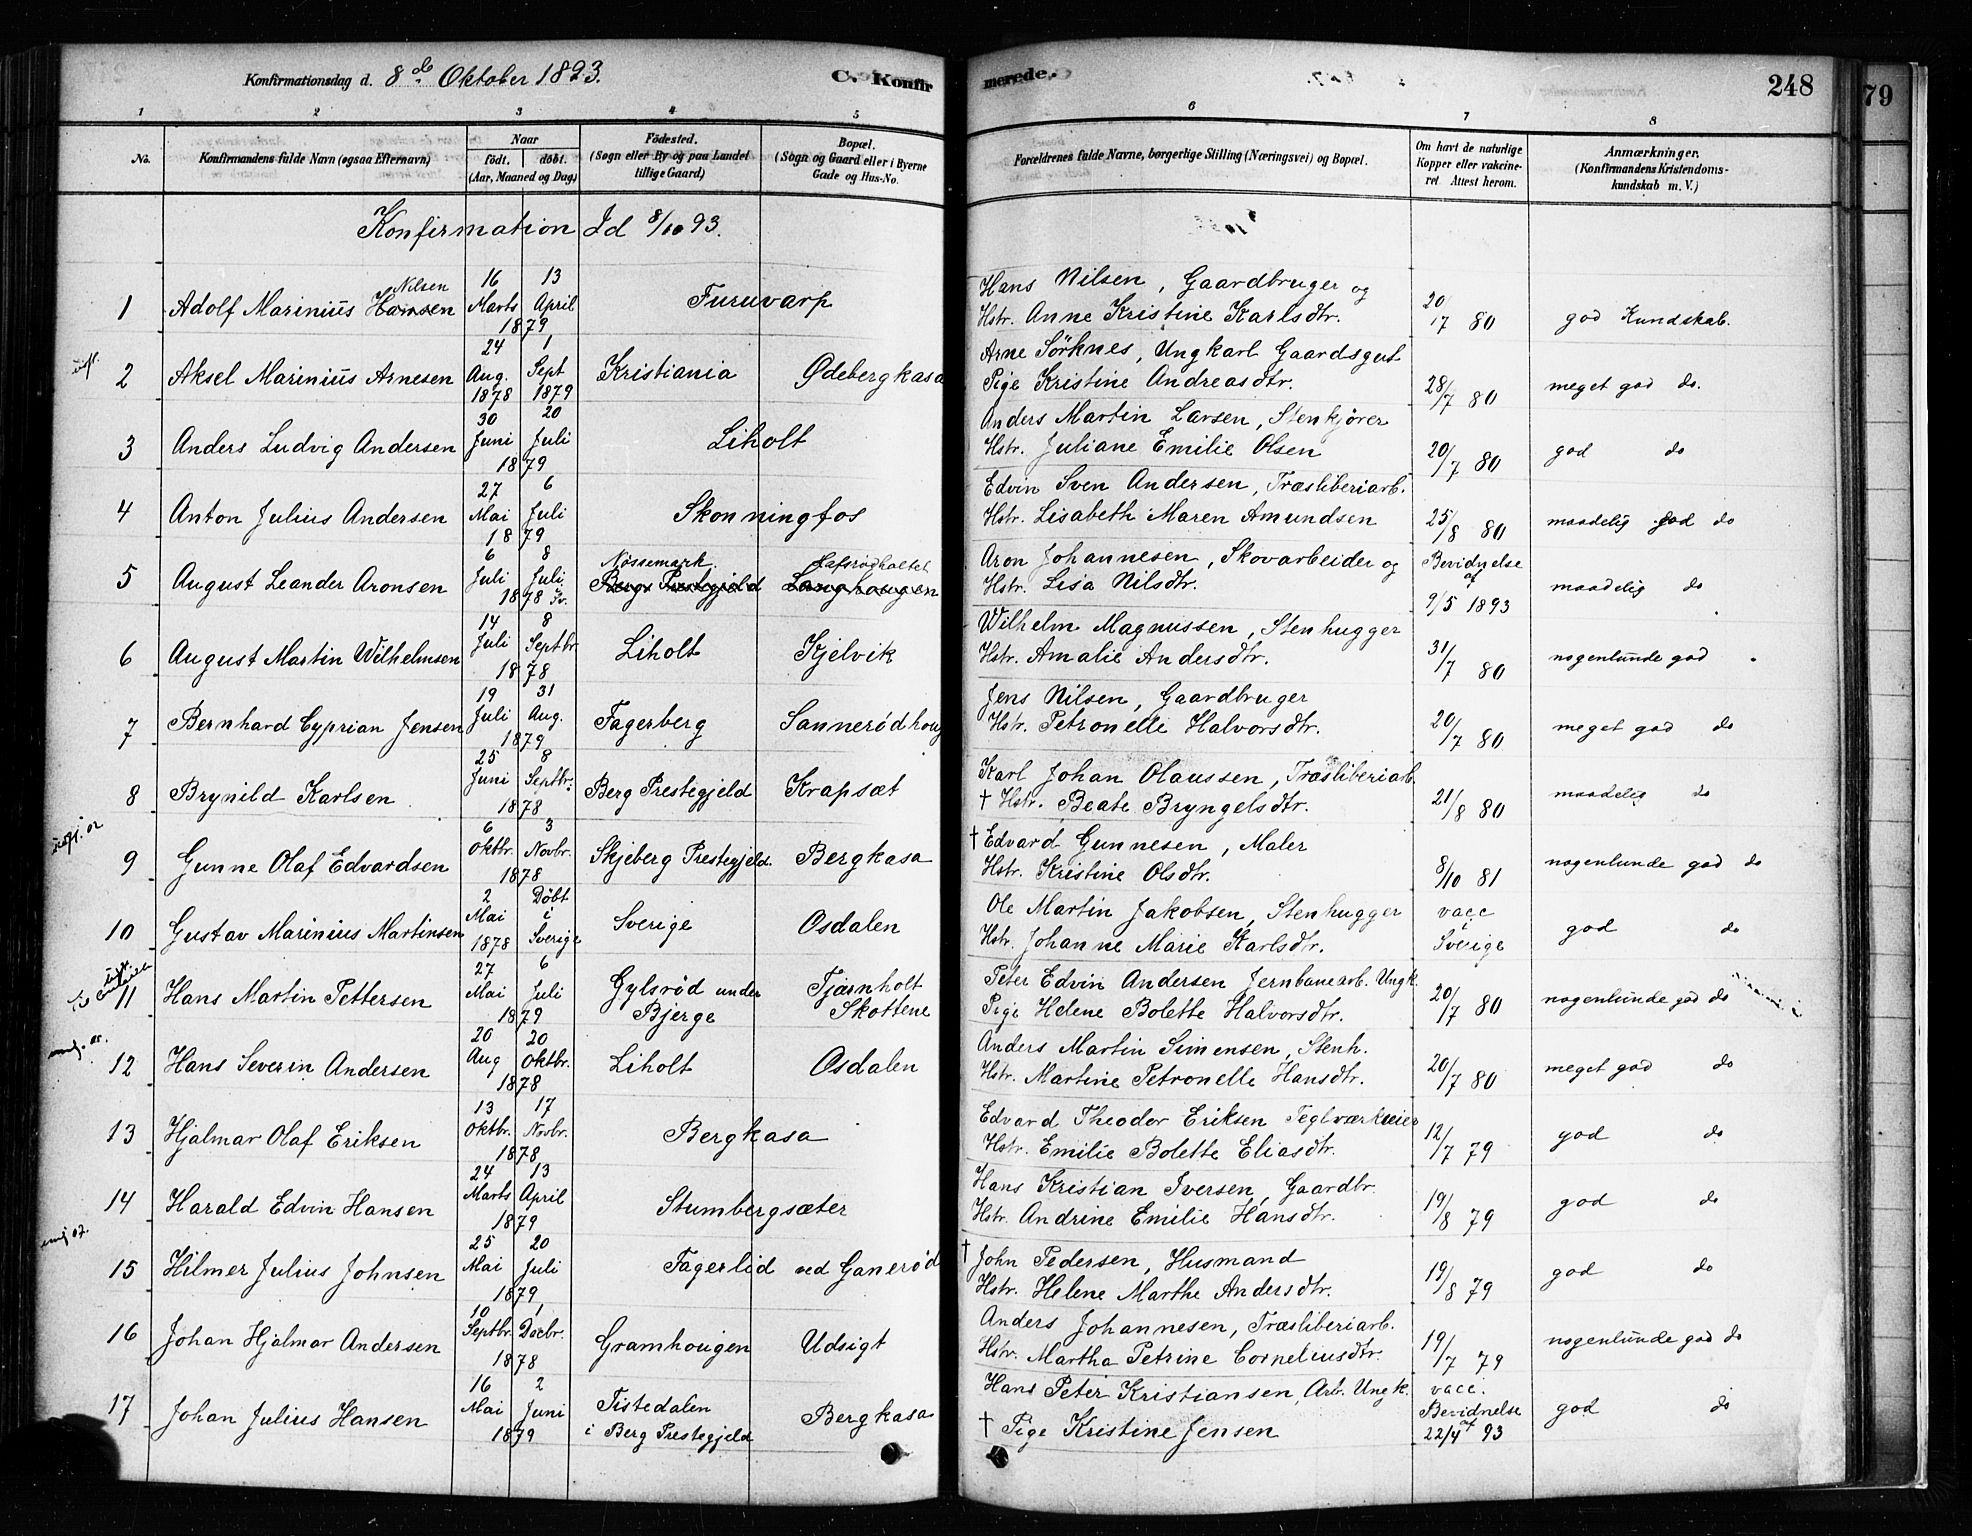 Konfirmationsdag d. 8de Oktober 1893.
C. Konfirmerede.
248
79
1 2 3 4 5 6 7 8
No.
Konfirmandens fulde Navn (ogsaa Efternavn)
Naar født. døbt. (Aar, Maaned og Dag)
Fødested. (Sogn eller By og paa Landet tillige Gaard)
Bopæl. (Sogn og Gaard eller i Byerne Gade og Hus-No.
Forældrenes fulde Navne, borgerlige Stilling (Næringsvei) og Bopæl.
Om havt de naturlige Kopper eller vakcineret Attest herom.
Anmærkninger. (Konfirmandens Kristendomskundskab m. V.)
Konfirmation Id 8/10 93.
1 Adolf Marinius Hansen Nilsen 16 Marts 13 April 1879 Furuvarp
Hans Nilsen, Gaardbruger og
Hstr. Anne Kristine Karlsdtr. 20/17 80 god Kundskab.
2 Aksel Marinius Arnesen 24 Aug. 1878 1 Sept 1879 Kristiania Ødebergkasa
Arne Sörknes, Ungkarl Gaardsgut
Pige Kristine Andreasdtr. 28/7 80 meget god do.
3 Anders Ludvig Andersen 30 Juni 20 Juli 1879 Liholt
Anders Martin Larsen, Stenkjører
Hstr. Juliane Emilie Olsen 20/7 80 god do
4 Anton Julius Andersen 27 Mai 6 Juli 1879 Skonningfos
Edvin Sven Andersen, Træsliberiarb.
Hstr. Lisabeth Maren Amundsen 25/8 80 maadelig god do
5 August Leander Aronsen 6 Juli 8 Juli 1878 Nössemark. Berg Prestegjeld Langhougen
Aron Johannesen, Skovarbeider og
Hstr. Lisa Nilsdtr. Bevidnelse af 9/5 1893 maadelig do
6 August Martin Wilhelmsen 14 Juli 8 Septbr 1878 Liholt Kjelvik
Wilhelm Magnussen, Stenhugger
Hstr. Amalie Andersdtr. 31/7 80 nogenlunde god
7 Bernhard Cyprian Jensen 19 Juli 31 Aug. 1879 Fagerberg Sannerødhoug
Jens Nilsen, Gaardbruger
Hstr. Petronelle Halvorsdtr. 20/7 80 meget god do
8 Brynild Karlsen 25 Juni 8 Septbr. 1878 Berg Prestegjeld Krapsæt
Karl Johan Olaussen, Træsliberiarb
† Hstr. Beate Bryngelsdtr. 21/8 80 maadelig do
9 Gunne Olaf Edvardsen 6 Oktbr. 3 Novbr. 1878 Skjeberg Prestegjeld Bergkasa
† Edvard Gunnesen, Maler
Hstr. Kristine Olsdtr. 8/10 81 nogenlunde god do
10 Gustav Marinius Martinsen 2 Mai 1878 Døbt i Sverige Sverige Osdalen
Ole Martin Jakobsen, Stenhugger
Hstr. Johanne Marie Karlsdtr. vacc i Sverige god do
11 Hans Martin Pettersen 27 Mai 6 Juli 1879 Gylsrød under Bjerge Tjærnholt Skottene
Peter Edvin Andersen Jernbanearb. Ungk.
Pige Helene Bolette Halvorsdtr. 20/7 80 nogenlunde god do
12 Hans Severin Andersen 20 Aug 20 Oktbr. 1878 Liholt Osdalen
Anders Martin Simensen, Stenh.
Hstr. Martine Petronelle Hansdtr. 20/7 80 meget god do
13 Hjalmar Olaf Eriksen 13 Oktbr. 17 Novbr. 1878 Bergkasa
Edvard Theodor Eriksen Teglværkeier
Hstr. Emilie Bolette Eliasdtr. 12/7 79 god do
14 Harald Edvin Hansen 24 Marts 13 April 1879 Stumbergsæter
Hans Kristian Iversen, Gaardbr.
Hstr. Andrine Emilie Hansdtr. 19/8 79 god do
15 Hilmer Julius Johnsen 25 Mai 20 Juli 1879 Fagerlid ved Ganerød
† John Pedersen, Husmand
Hstr. Helene Marthe Andersdtr. 19/8 79 god do
16 Johan Hjalmar Andersen 10 Septbr. 1 Decbr. 1878 Gramhougen Udsigt
Anders Johannesen, Træsliberiarb.
Hstr. Martha Petrine Corneliusdtr. 19/7 79 nogenlunde god do
17 Johan Julius Hansen 16 Mai 2 Juni 1879 Tistedalen i Berg Prestegjeld Bergkasa
Hans Peter Kristiansen, Arb. Ungk.
† Pige Kristine Jensen vacc. Bevidnelse af 22/4 93 god do